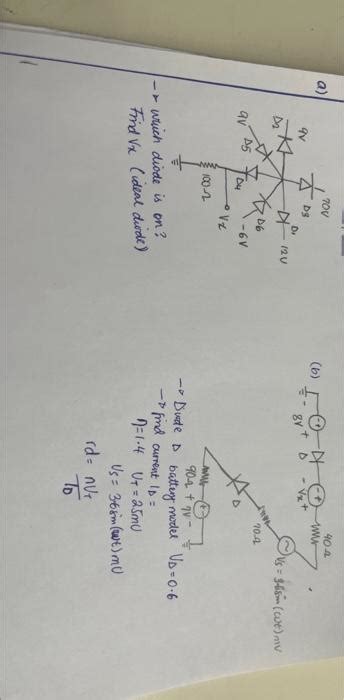 a)
9V
D2
70V
D3
D1
12V
9V
D5
D4
D6
-6V
100Ω
Vx
→ Which diode is on?
Find Vx (ideal diode)
(b)
- 8V +
D
- Vx +
90Ω
Vs = 36sin(ωt)mV
70Ω
D
90Ω + 9V -
→ Diode D battery model VD = 0.6
→ find current ID =
η = 1.4 VT = 25mV
Vs = 36sin(ωt)mV
rd = nVT
ID